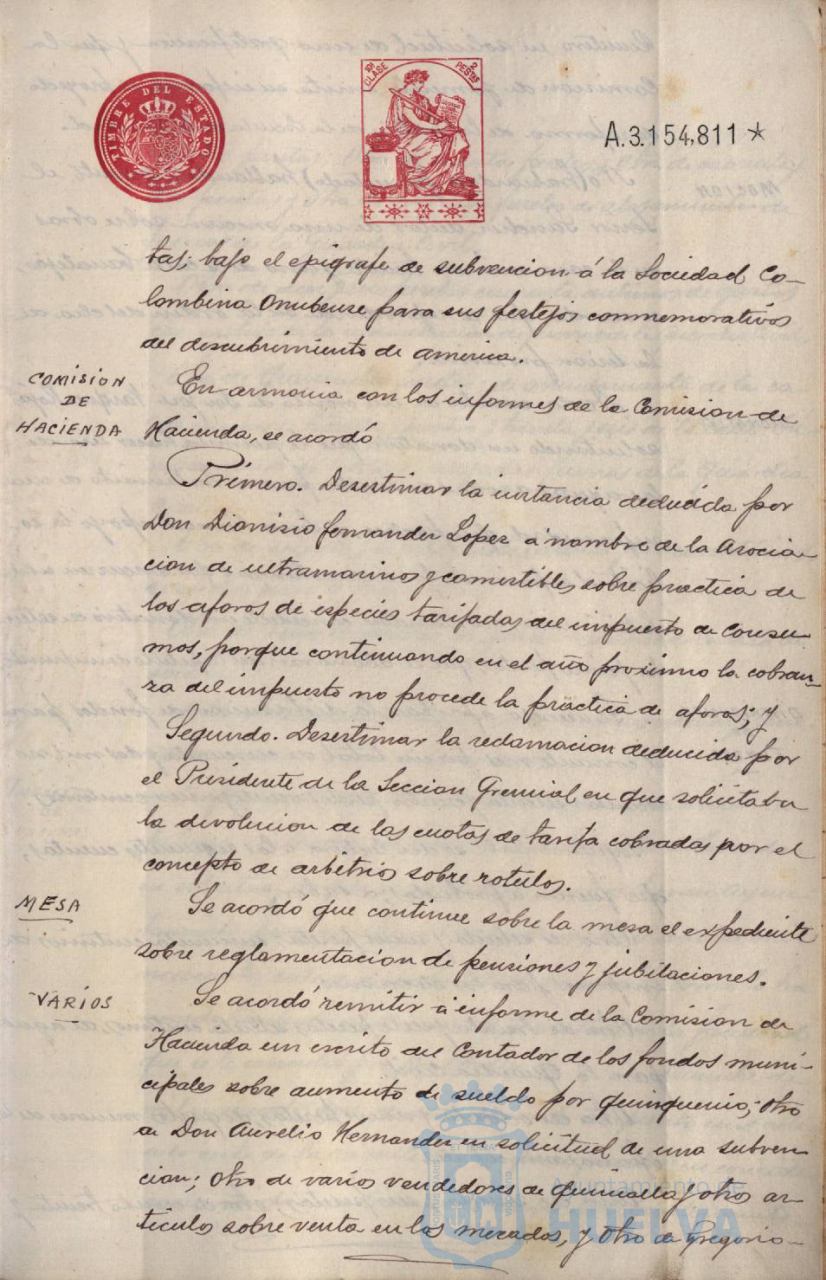 TIMBRE DEL ESTADO
10ª CLASE 2 PESTAS
A.3.154,811 *
tas; bajo el epigrafe de subvencion á la Sociedad Co-
lombina Onubense para sus festejos conmemorativos
del descubrimiento de america.
COMISION
DE
HACIENDA
En armonia con los informes de la Comision de
Hacienda, se acordó
Primero. Desestimar la instancia deducida por
Don Dionisio Fernandez Lopez á nombre de la Asocia-
cion de ultramarinos y comestibles sobre practica de
los aforos de especies tarifadas del impuesto de Consu-
mos, porque continuando en el año proximo la cobran-
za del impuesto no procede la práctica de aforos; y
Segundo. Desestimar la reclamacion deducida por
el Presidente de la Seccion Gremial en que solicitaba
la devolucion de las cuotas de tarifa cobradas por el
concepto de arbitrio sobre rotulos.
MESA
Se acordó que continue sobre la mesa el expediente
sobre reglamentacion de pensiones y jubilaciones.
VARIOS
Se acordó remitir á informe de la Comision de
Hacienda un escrito del Contador de los fondos muni-
cipales sobre aumento de sueldo por quinquenio; otro
de Don Aurelio Hernandez en solicitud de una subven
cion; otro de varios vendedores de quincalla y otros ar-
ticulos sobre venta en los mercados, y otro de Gregorio
Ayuntamiento de
HUELVA